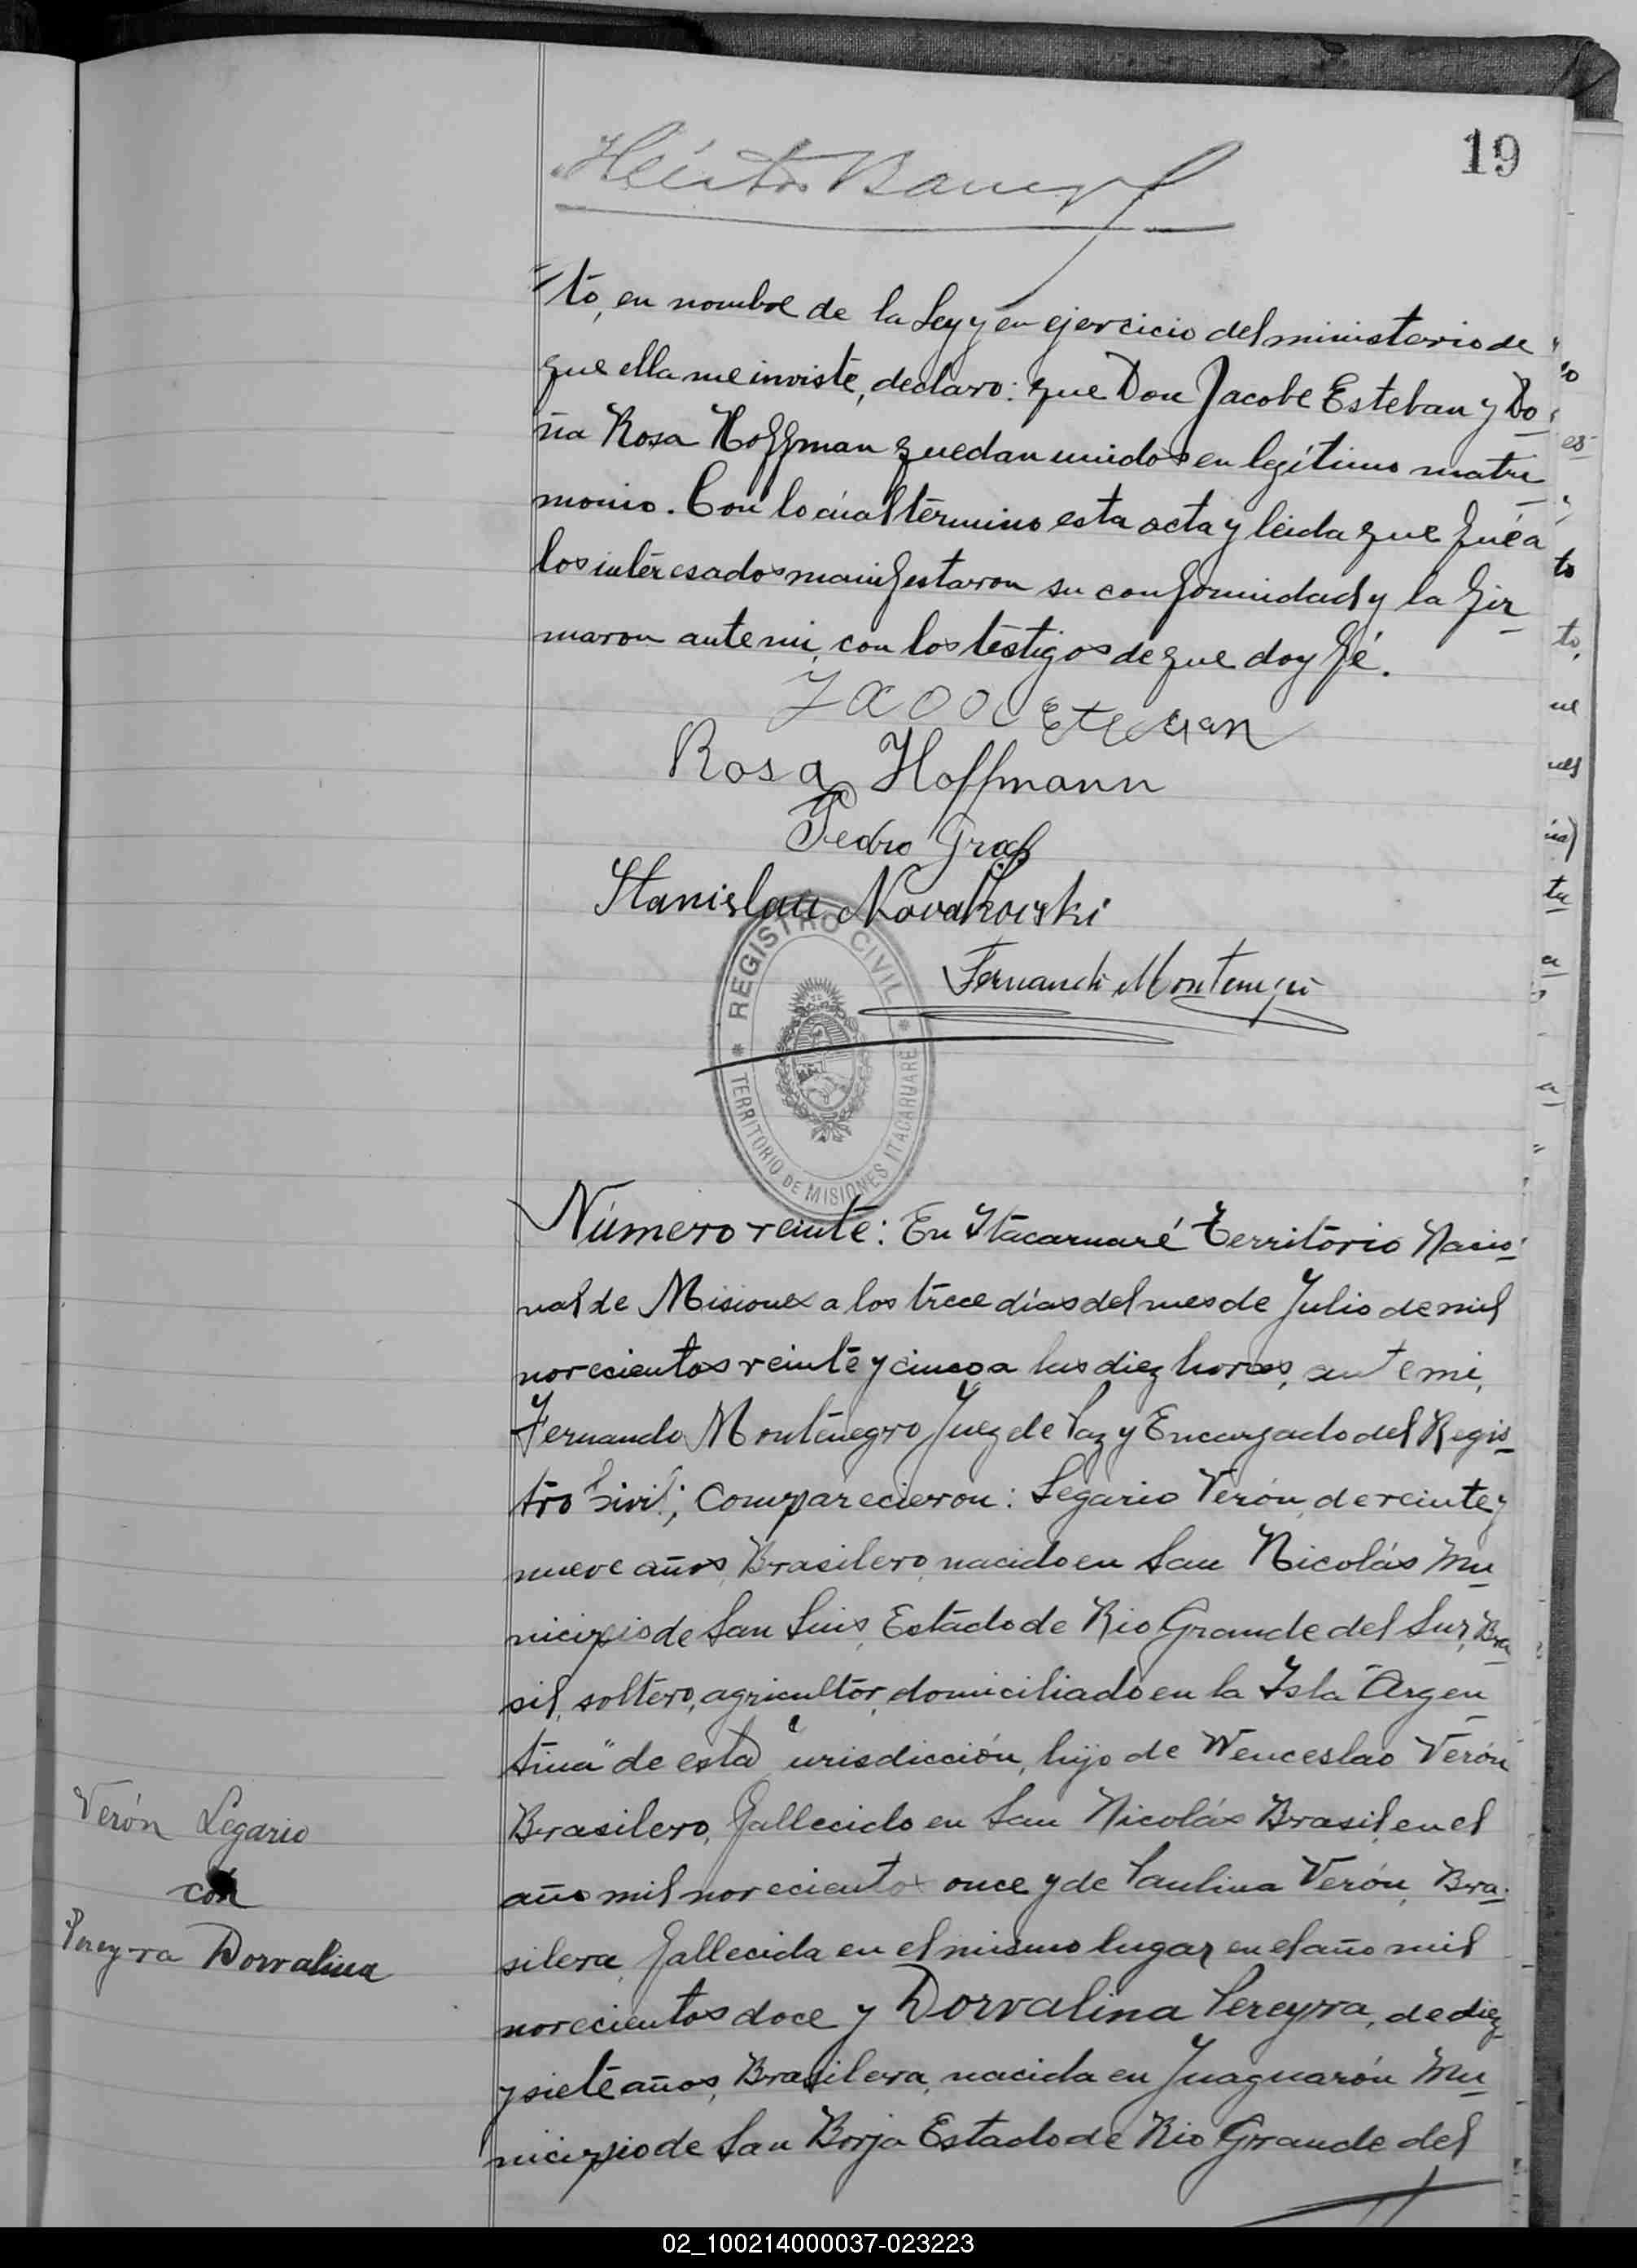 19
Héctor
to, en nombre de la Ley y en ejercicio del ministerio de
que ella me inviste, declaro: que Don Jacobe Esteban y Do
ña Rosa Hoffman quedan unidos en legítimo matri
monio. Con lo cúal termino esta acta y leida que fué a
los interesados manifestaron su conformidad y la fir
maron ante mi, con los testigos de que doy fé.
Rosa Hoffmann
Pedro Graf
Stanislau Novakowski
Fernando Montenegro
REGISTRO CIVIL
TERRITORIO DE MISIONES ITACARUARE
Número veinte: En Itacaruaré Territorio Nacio
nal de Misiones a los trece días del mes de Julio de mil
novecientos veinte y cinco a las diez horas, ante mi,
Fernando Montenegro Juez de Paz y Encargado del Regis
tro Civil; Comparecieron: Legario Verón, de veinte y
nueve años, Brasilero, nacido en San Nicolás Mu
nicipio de San Luis, Estado de Rio Grande del Sur, Bra
sil, soltero, agricultor, domiciliado en la Isla "Argen
tina" de esta jurisdicción, hijo de Wenceslao Verón
Brasilero, fallecido en San Nicolás Brasil, en el
año mil novecientos once y de Paulina Verón, Bra
silera, fallecida en el mismo lugar en el año mil
novecientos doce y Dorvalina Pereyra, de diez
y siete años, Brasilera, nacida en Juaguarón Mu
nicipio de San Borja Estado de Rio Grande del
Verón Legario
con
Pereyra Dorvalina
02_100214000037-023223